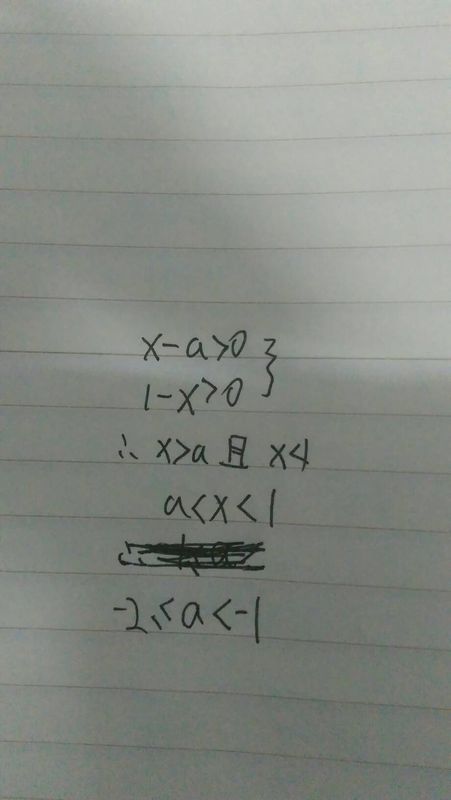 x-a>0 }
1-x>0
∴ x>a 且 x<1
a<x<1
-2≤a<-1